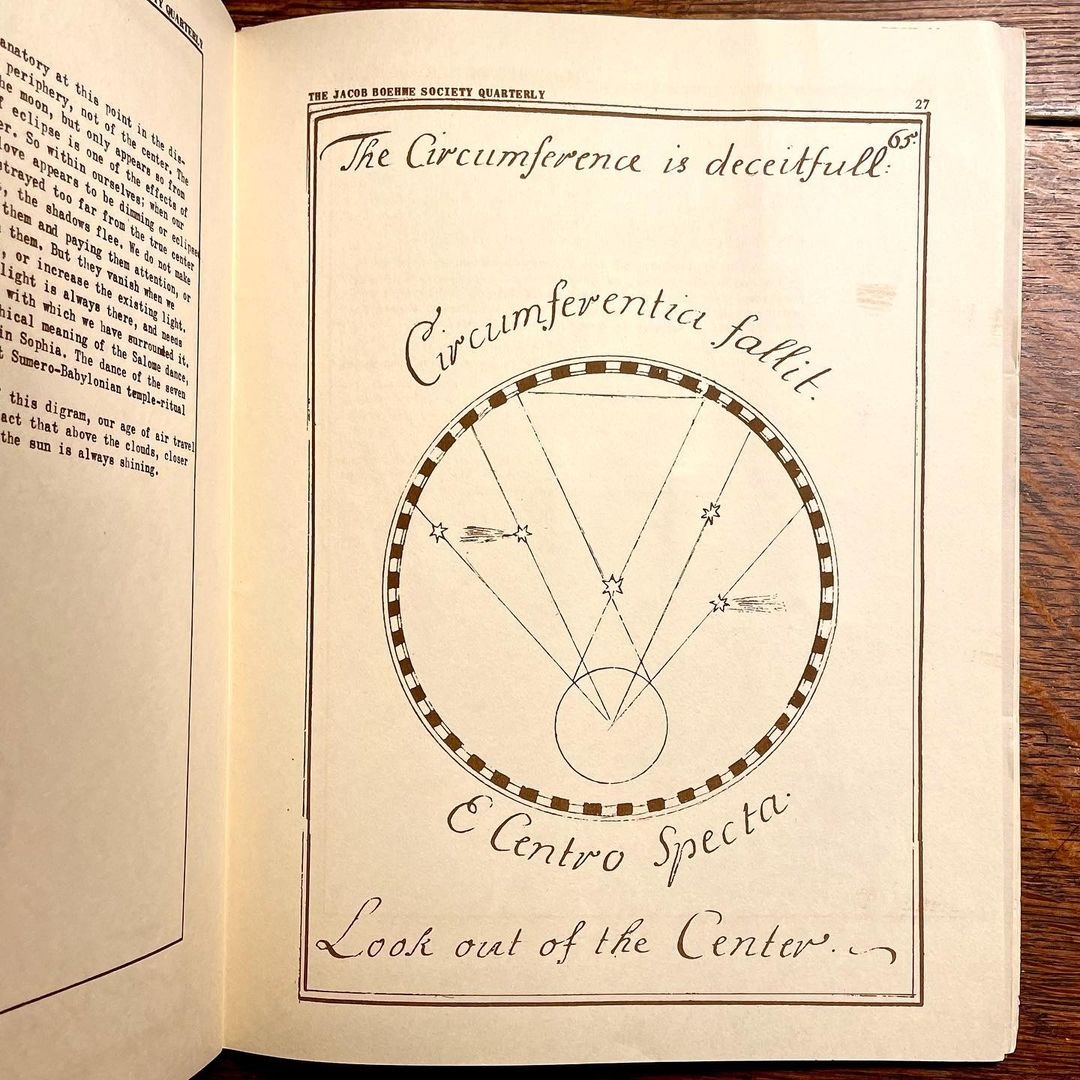 TY QUARTERLY
anatory at this point in the dis-
periphery, not of the center. The
he moon, but only appears so from
f eclipse is one of the effects of
er. So within ourselves; when our
love appears to be dimming or eclipse
strayed too far from the true center
, the shadows flee. We do not make
them and paying them attention, or
them. But they vanish when we
, or increase the existing light.
light is always there, and needs
with which we have surrounded it.
hical meaning of the Salome dance,
in Sophia. The dance of the seven
t Sumero-Babylonian temple-ritual
this digram, our age of air travel
act that above the clouds, closer
the sun is always shining.
THE JACOB BOEHME SOCIETY QUARTERLY
27
65.
The Circumference is deceitfull:
Circumferentia fallit.
E Centro Specta.
Look out of the Center.